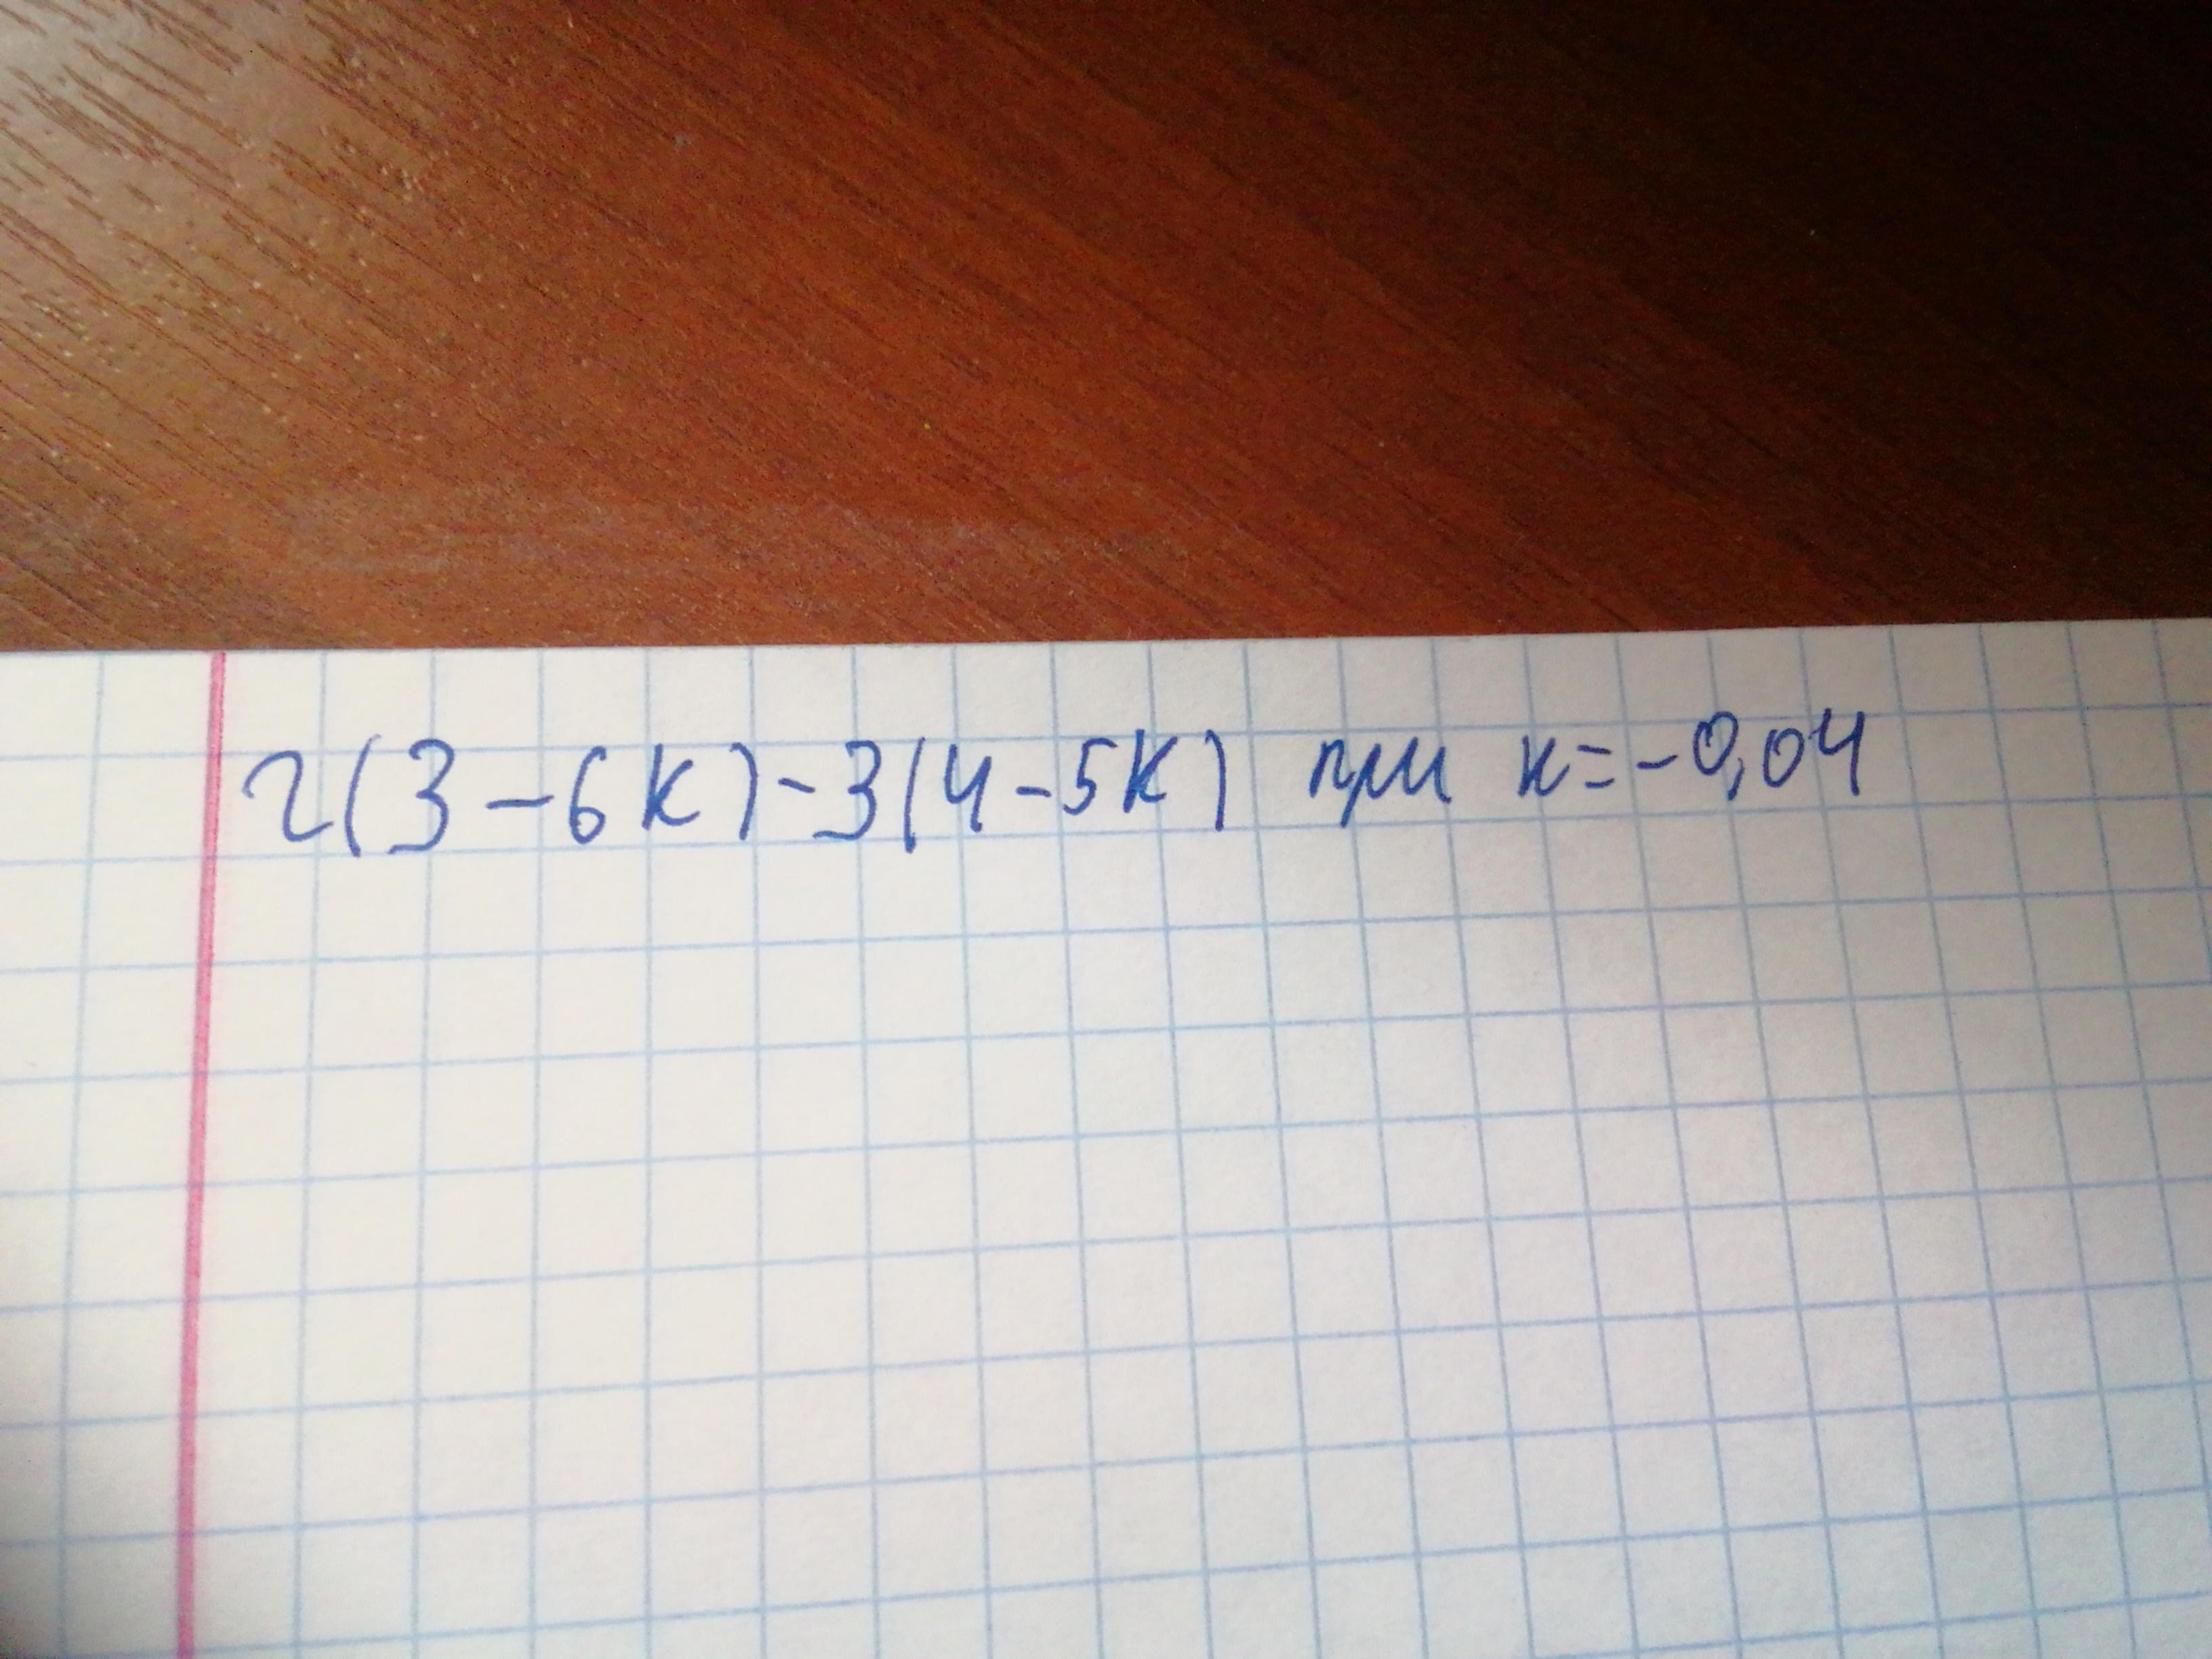 2(3-6к)-3(4-5к) при к=-0,04